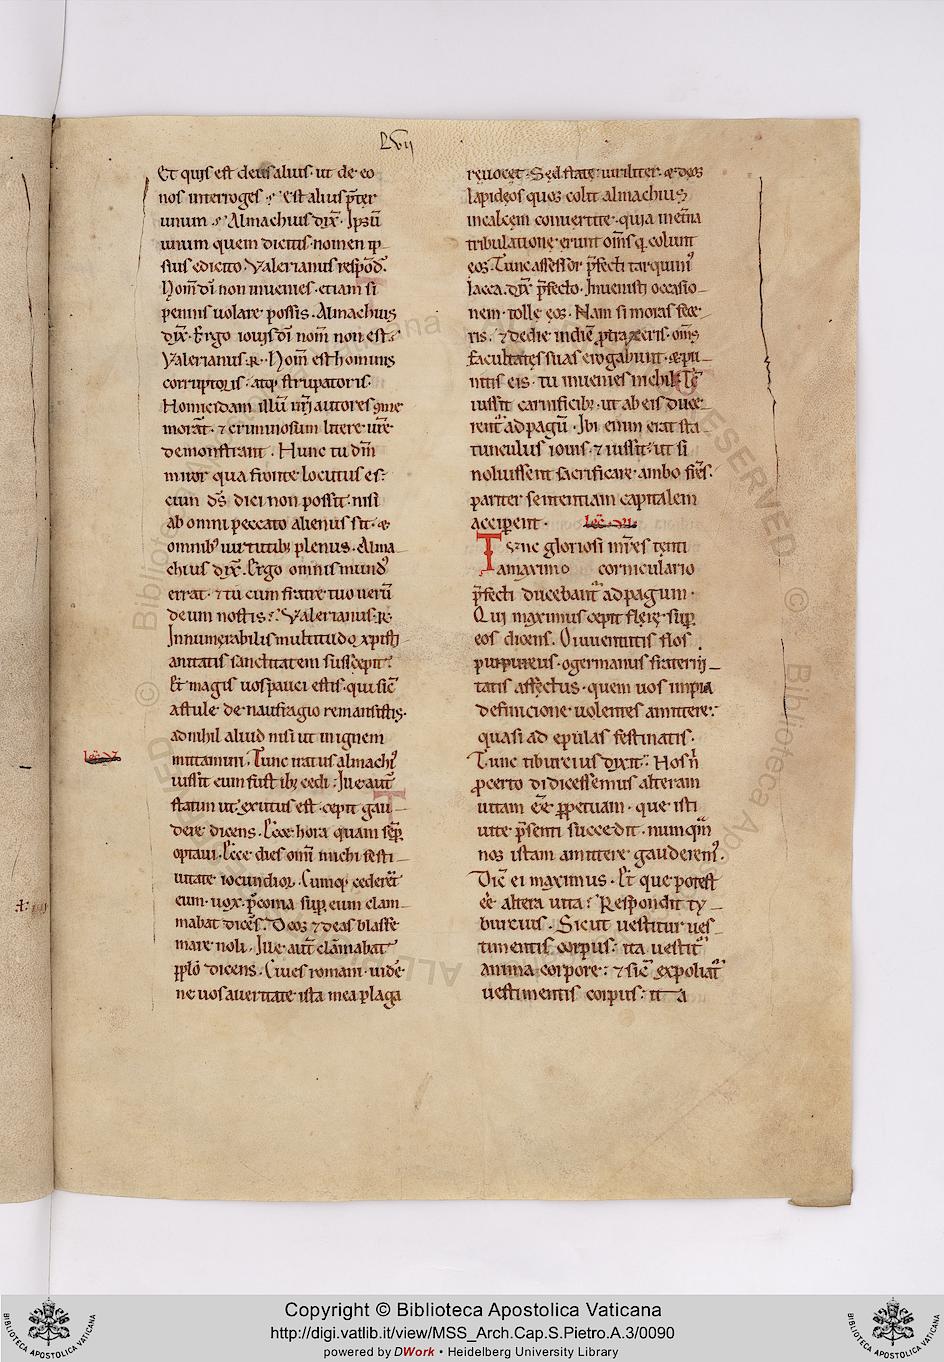 LXVII
Et quis est deus alius · ut de eo
nos interroges ? Est alius p̄ter
unum ? Almachius dix̄ · Ipsū
unum quem dicitis · nomen ip-
sius edicito · Valerianus respōd̄ ·
Nom̄ dī non invenies · etiam si
pennis volare possis · Almachius
dix̄ · Ergo iovis dī nom̄ non est ?
Valerianus · R · Nom̄ est hominis
corruptoris · atq; strupatoris ·
Homicidam illū vr̄i autores ꝯme
morāt · ⁊ criminosum littere vr̄e
demonstrant · Hunc tu dm̄
miror qua fronte locutus es :
cum ds̄ dici non possit · nisi
ab omni peccato alienus sit · &
omnib; virtutib; plenus · Alma-
chius dix̄ · Ergo omnis mund'
errat · ⁊ tu cum fratre tuo verū
deum nostis ? Valerianus · R ·
Innumerabilis multitudo xp̄isti
anitatis sanctitatem suscepit :
Et magis vos pauci estis · qui sic̄
astule de naufragio remansistis ·
ad nihil aliud nisi ut in ignem
mittamini · Tunc iratus almachi'
iussit eum fustib; cedi : Ille aut̄
statim ut exutus est · cepit gau-
dere dicens · Ecce hora quam semp̄
optavi · Ecce dies om̄i michi festi-
vitate iocundior · Cumq; cederet̄
eum · vox p̄conia sup̄ eum clam-
mabat dicēs · Deos ⁊ deas blasfe
mare noli · Ille aut̄ clāmabat
pp̄lō dicens · Cives romani · vidē
ne vos avertatē ista mea plaga
revocet · Sed state viriliter · & deos
lapideos quos colit almachius
in calcem convertite · quia in etn̄a
tribulatione erunt om̄s q̄ colunt
eos · Tunc assessor p̄fecti tarquini'
lacca · dix̄ p̄fecto · Invenisti occasio-
nem · tolle eos · Nam si moras fece
ris · ⁊ de die in diē ꝓtraxeris · om̄s
facultates suas erogabunt · & pu-
nitis eis · tu invenies nichil · Tc̄
iussit carnificib; · ut ab eis duce-
rent̄ ad pagū · Ibi enim erat sta
tunculus iovis · ⁊ iussit · ut si
noluissent sacrificare · ambo frēs ·
pariter sententiam capitalem
acciperent ·
Tunc gloriosi mr̄es tenti
a maximo corniculario
p̄fecti ducebant̄ ad pagum ·
Qui maximus cepit flere sup̄
eos dicens · O iuventutis flos
purpureus · o germanus fraterni-
tatis affectus · quem vos impia
definicione volentes amittere :
quasi ad epulas festinatis ·
Tunc tiburcius dixit : Nos n̄
ꝓ certo didicessemus alteram
vitam ēe perpetuam · que isti
vite p̄senti succedit · numqm̄
nos istam amittere gauderem' ·
Dic̄ ei maximus · Et que potest
ēe altera vita ? Respondit ty-
burcius · Sicut vestitur ves-
timentis corpus : ita vestit̄
anima corpore : ⁊ sic̄ expoliat̄
vestimentis corpus : ita
Copyright © Biblioteca Apostolica Vaticana
http://digi.vatlib.it/view/MSS_Arch.Cap.S.Pietro.A.3/0090
powered by DWork • Heidelberg University Library
BIBLIOTECA APOSTOLICA VATICANA
BIBLIOTECA APOSTOLICA VATICANA